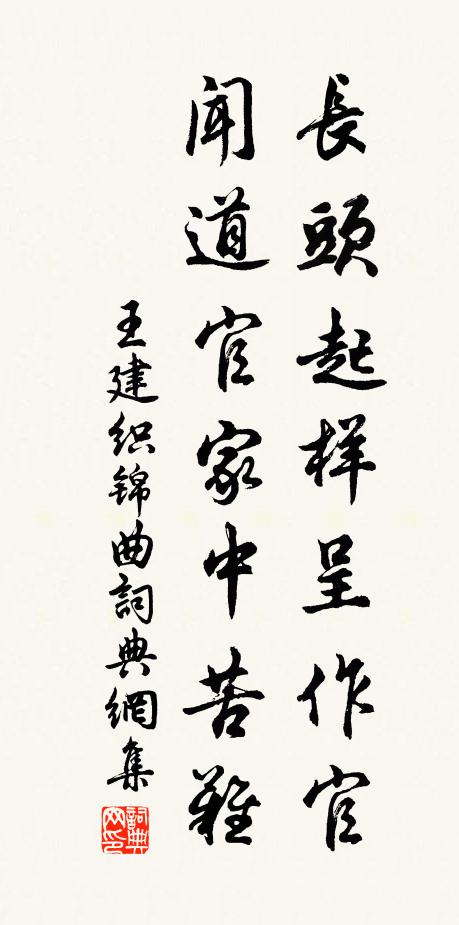 長頭起样呈作官
聞道官家中苦難
王建织锦曲詞典網集
詞典网印